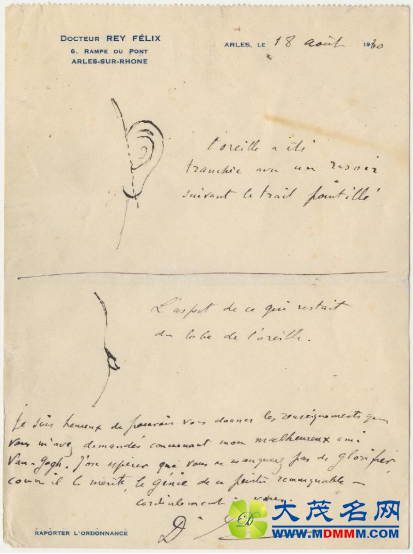 DOCTEUR REY FÉLIX
6. RAMPE DU PONT
ARLES-SUR-RHONE
ARLES, LE 18 août 1930
l'oreille a été
tranchée avec un rasoir
suivant le trait pointillé
L'aspect de ce qui restait
du lobe de l'oreille.
Je suis heureux de pouvoir vous donner les renseignements que
vous m'avez demandés concernant mon malheureux ami
Van-Gogh. J'ose espérer que vous ne manquerez pas de glorifier
comme il le mérite le génie de ce peintre remarquable –
Cordialement à vous.
Dr Rey
RAPORTER L'ORDONNANCE
大茂名网
WWW.MDMMM.COM